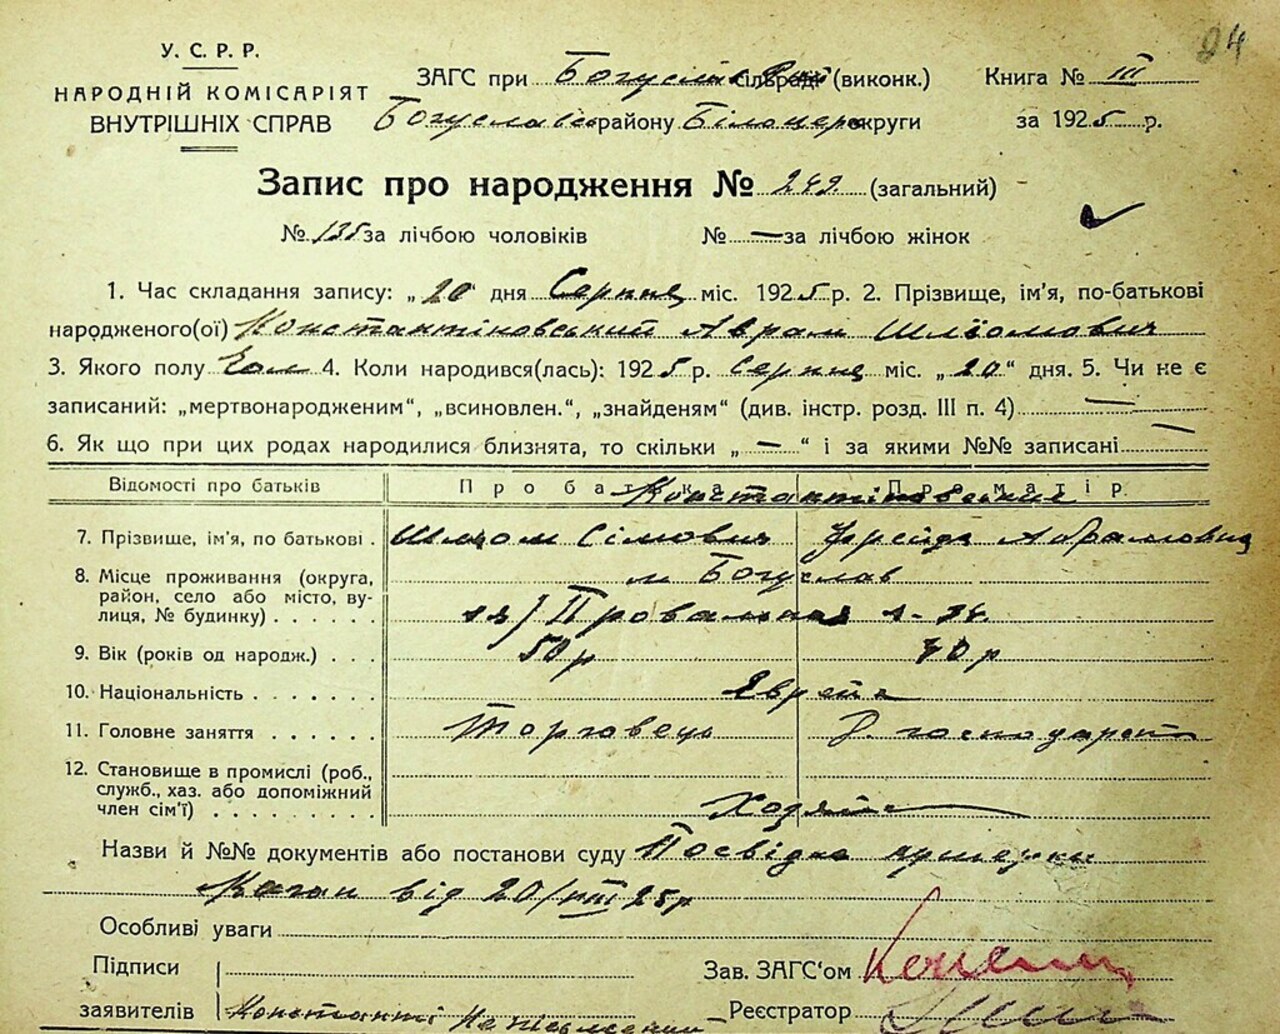 24
У. С. Р. Р.
НАРОДНІЙ КОМІСАРІЯТ
ВНУТРІШНІХ СПРАВ
ЗАГС при сільраді (виконк.) Книга № III
району Білоцерк округи за 1925 р.
Запис про народження № 249 (загальний)
№ 135 за лічбою чоловіків № — за лічбою жінок
1. Час складання запису: „20 дня Серпня міс. 1925 р. 2. Прізвище, ім'я, по-батькові
народженого(ої) Константіновський Аврам Шльомович
3. Якого полу Чол 4. Коли народився(лась): 1925 р. Серпня міс. „20“ дня. 5. Чи не є
записаний: „мертвонародженим“, „всиновлен.“, „знайденям“ (див. інстр. розд. III п. 4) —
6. Як що при цих родах народилися близнята, то скільки „—“ і за якими №№ записані —
Відомості про батьків Про батька Про матір
Константіновських
7. Прізвище, ім'я, по батькові . Шльом Сімович Фрейда Абрамовна
8. Місце проживання (округа, район, село або місто, вулиця, № будинку) . . . . . . м Богуслав
9. Вік (років од народж.) . . . 50 р 40 р
10. Національність . . . . . . . Евреі
11. Головне заняття . . . . . . Торговець Д. господарст
12. Становище в промислі (роб.,
служб., хаз. або допоміжний
член сім'ї) . . . . . . . . . Хазяїн
Назви й №№ документів або постанови суду Посвідка акушерки
Каган від 20/VIII 25р
Особливі уваги
Підписи Зав. ЗАГС'ом
заявителів Константі Реєстратор